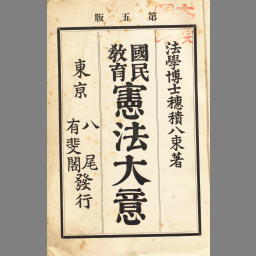 第五版
法學博士穗積八束著
國民
教育
憲法大意
東京
八尾
有斐閣
發行